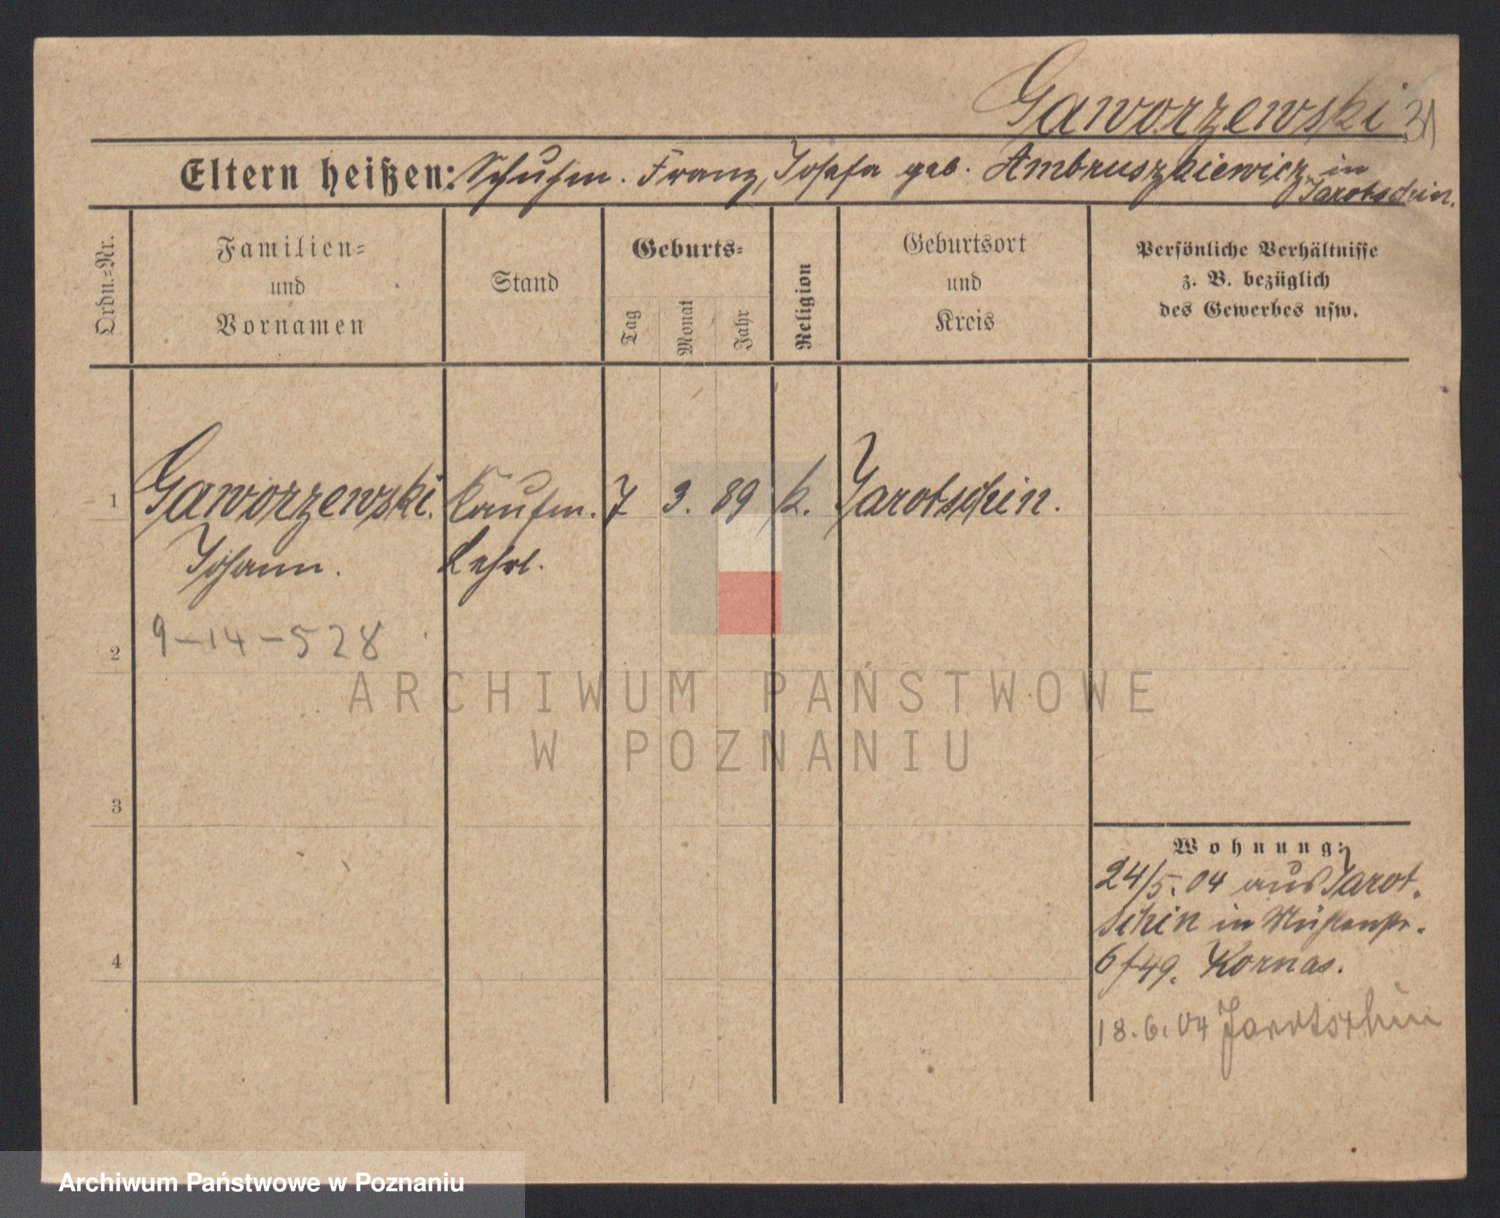 Gaworzewski 31
Eltern heißen: Schuhm. Franz, Josefa geb. Ambruszkiewicz in Jarotschin.
Ordn.-Nr.
Familien- und Vornamen
Stand
Geburts-
Tag
Monat
Jahr
Religion
Geburtsort und Kreis
Persönliche Verhältnisse
z. B. bezüglich
des Gewerbes usw.
1 Gaworzewski. Kaufm. 7 3. 89 k. Jarotschin.
Johann. Lehrl.
2 9-14-528
ARCHIWUM PAŃSTWOWE
W POZNANIU
3
Wohnung:
24/5. 04 aus Jarot.
schin in Mühlenstr.
4
6/49. Kornas.
18.6.04 Jarotschin
Archiwum Państwowe w Poznaniu